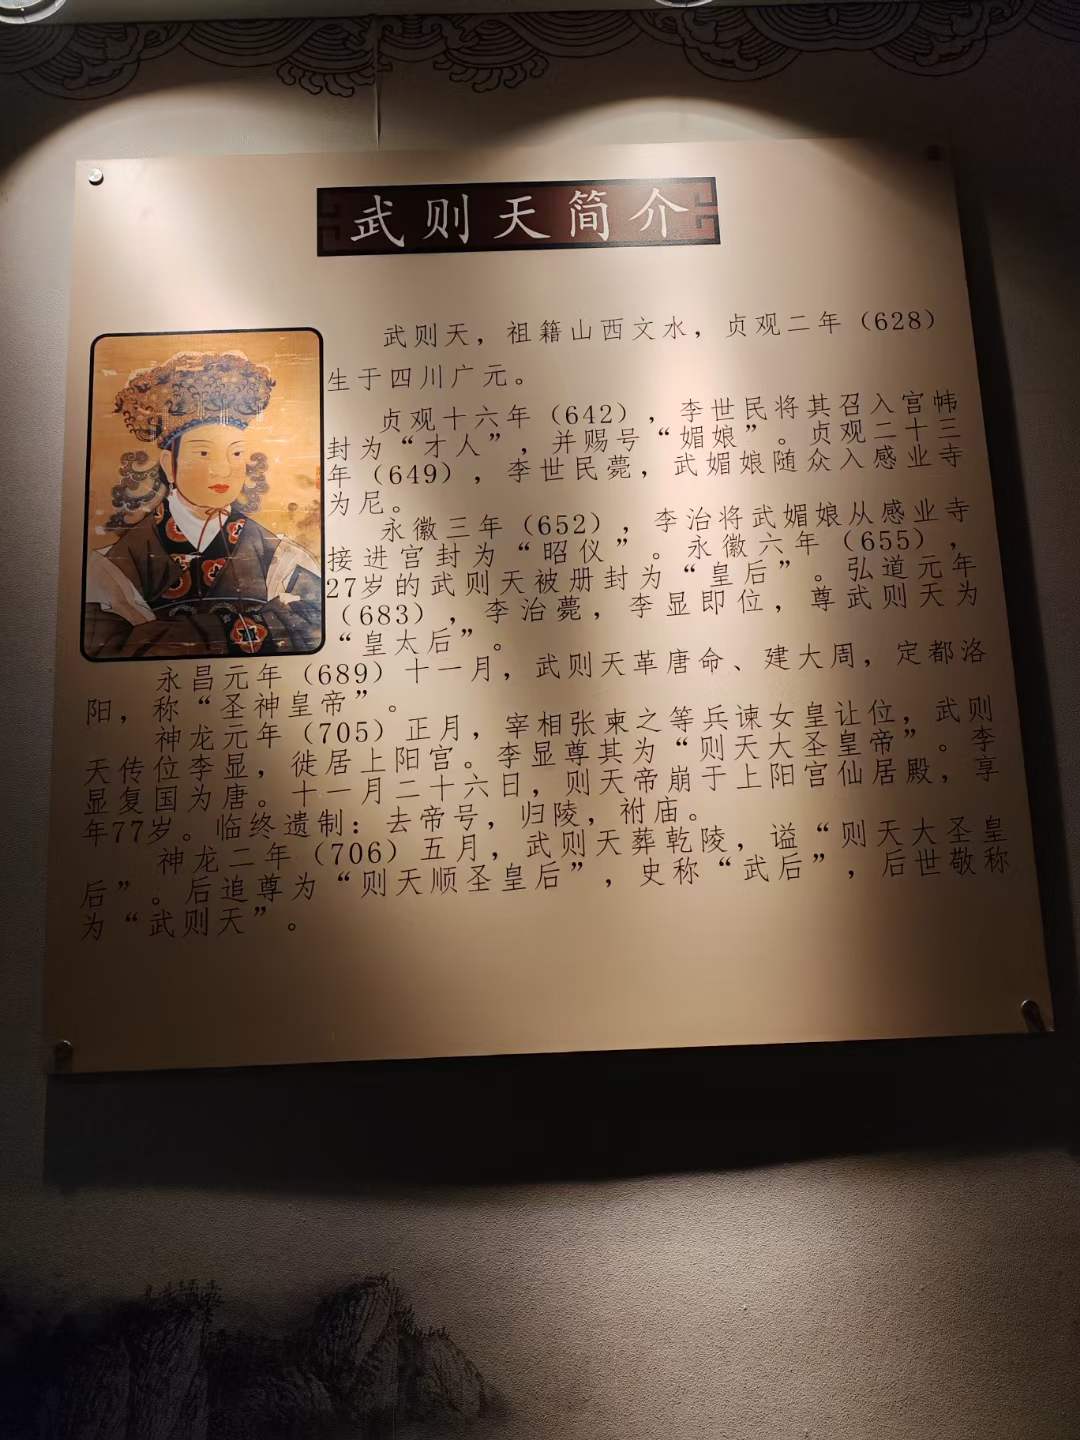 武则天简介
武则天，祖籍山西文水，贞观二年（628）
生于四川广元。
贞观十六年（642），李世民将其召入宫帏
封为“才人”，并赐号“媚娘”。贞观二十三
年（649），李世民薨，武媚娘随众入感业寺
为尼。
永徽三年（652），李治将武媚娘从感业寺
接进宫封为“昭仪”。永徽六年（655），
27岁的武则天被册封为“皇后”。弘道元年
（683），李治薨，李显即位，尊武则天为
“皇太后”。
永昌元年（689）十一月，武则天革唐命、建大周，定都洛
阳，称“圣神皇帝”。
神龙元年（705）正月，宰相张柬之等兵谏女皇让位，武则
天传位李显，徙居上阳宫。李显尊其为“则天大圣皇帝”。李
显复国为唐。十一月二十六日，则天帝崩于上阳宫仙居殿，享
年77岁。临终遗制：去帝号，归陵，祔庙。
神龙二年（706）五月，武则天葬乾陵，谥“则天大圣皇
后”。后追尊为“则天顺圣皇后”，史称“武后”，后世敬称
为“武则天”。